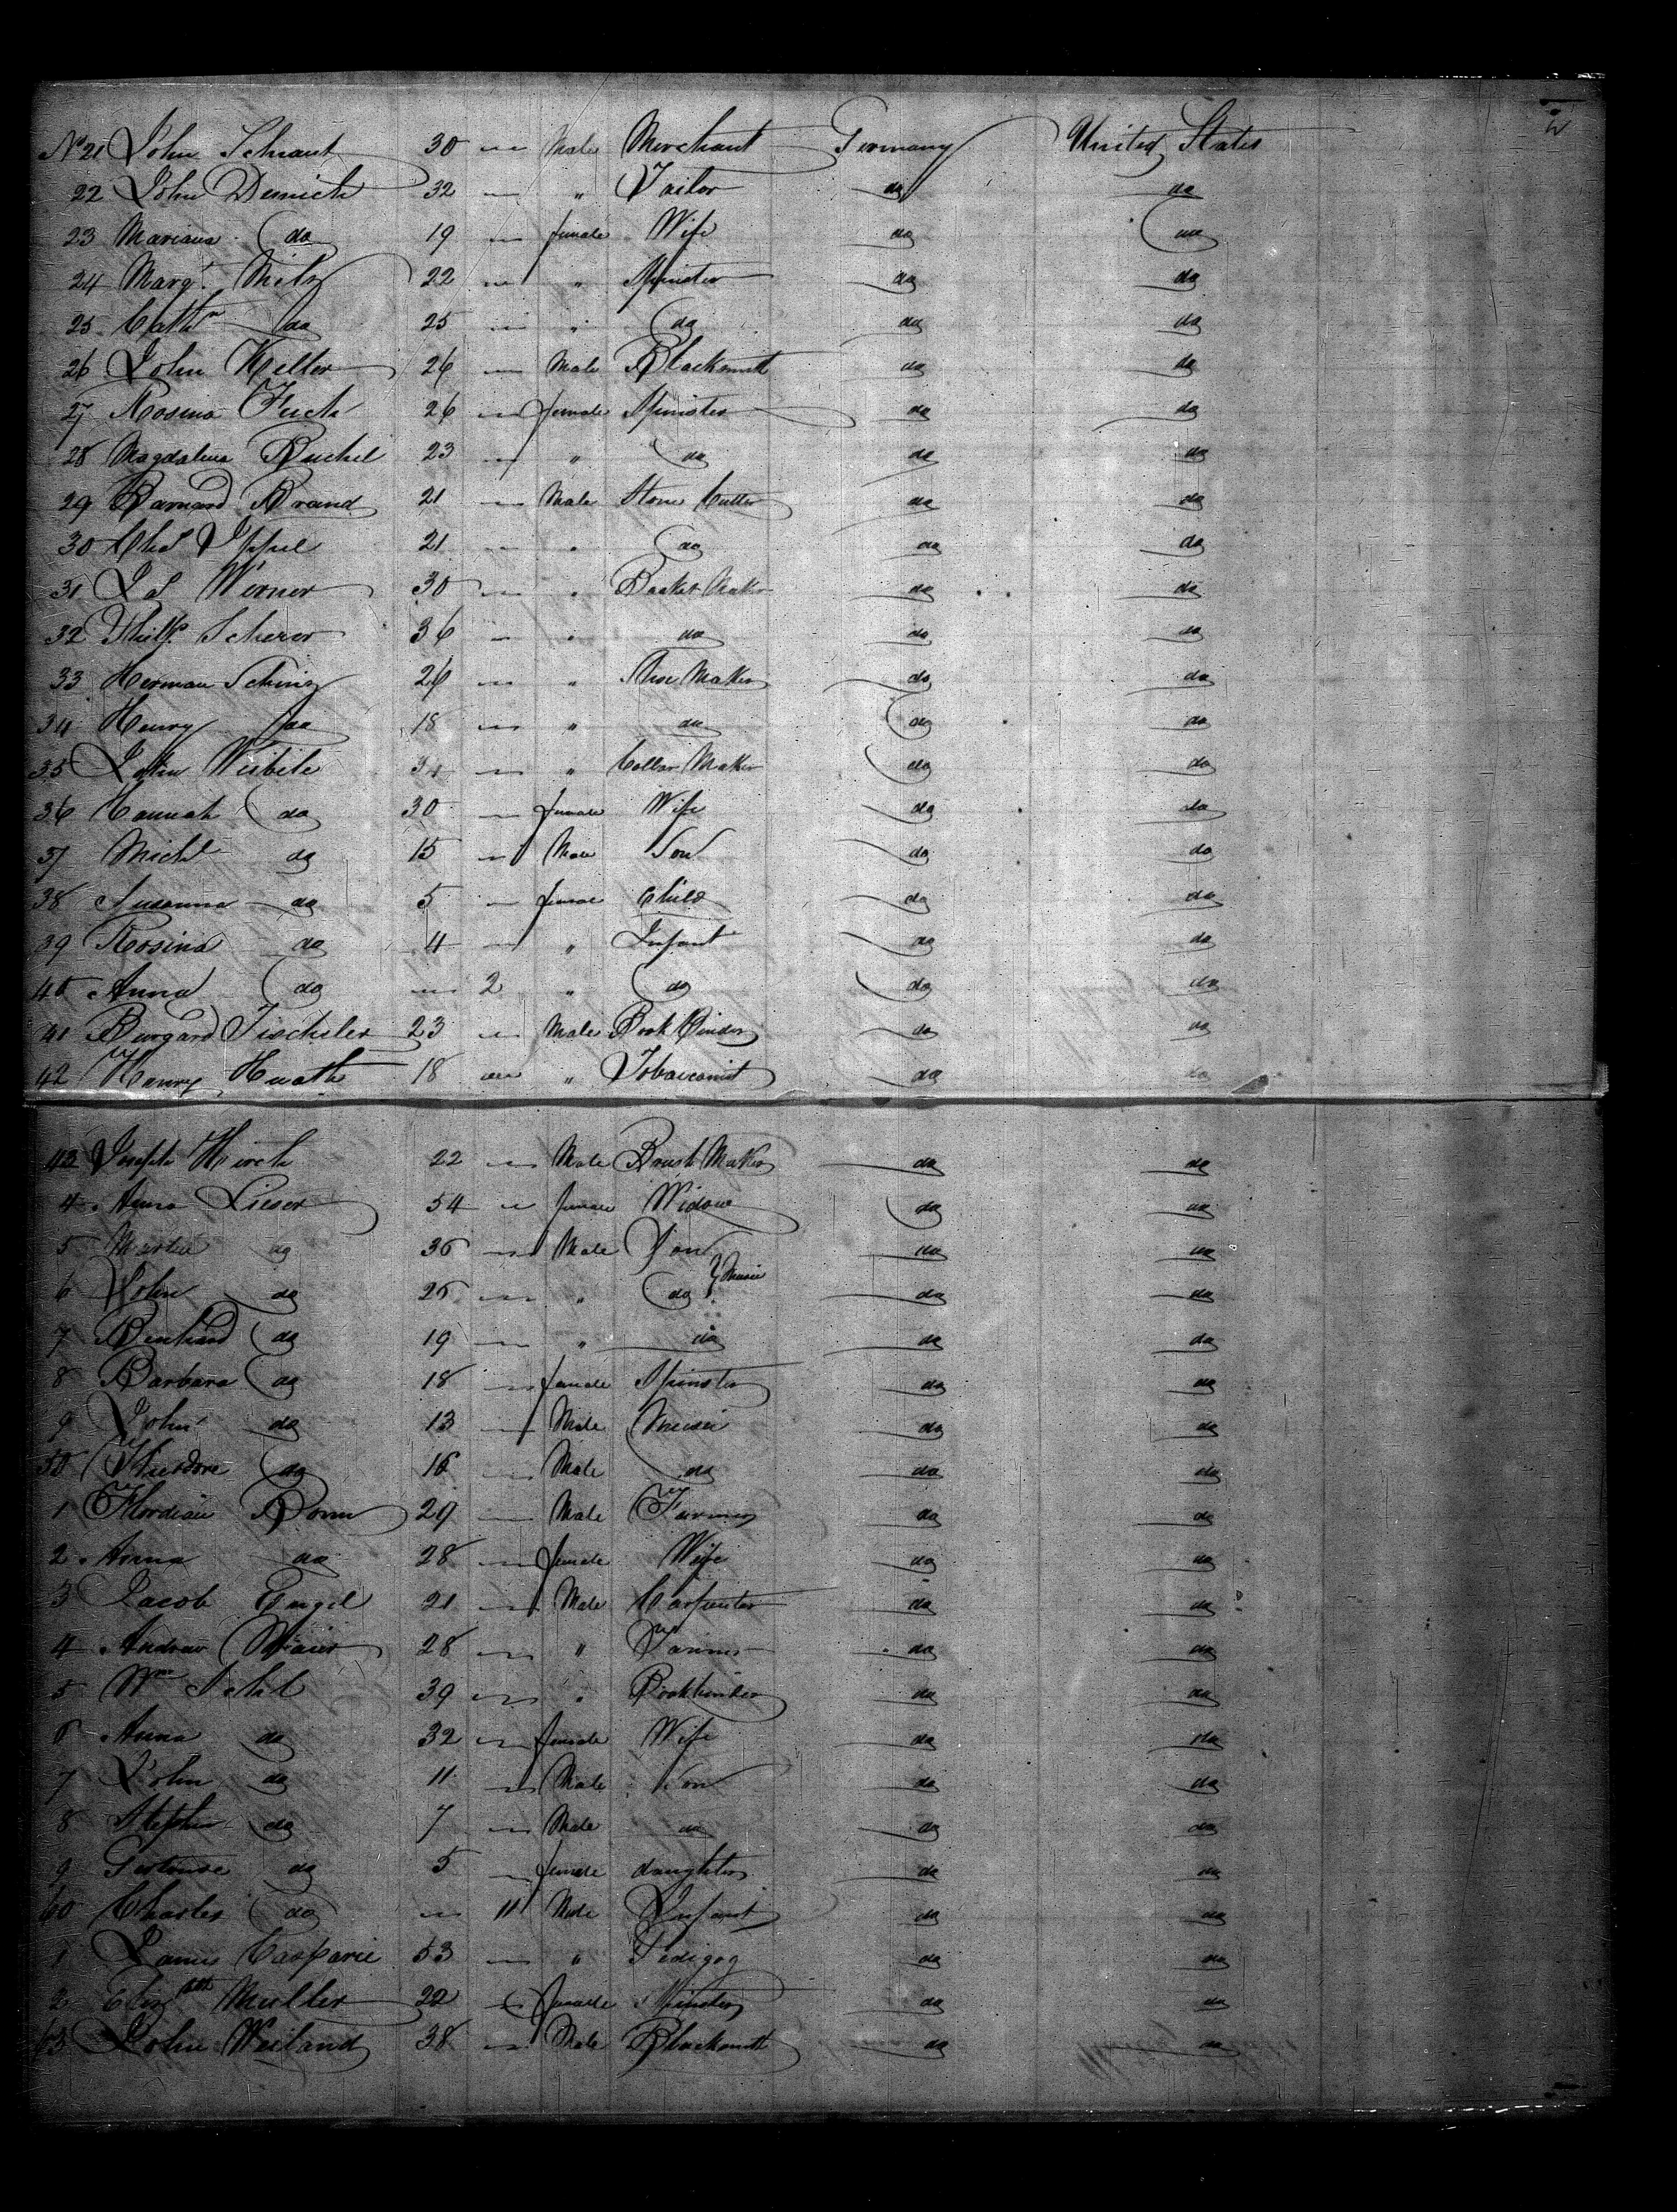 No 21 John Schraut 30 — Male Merchant Germany United States
22 John Demich 32 — " Tailor do do
23 Mariana do 19 — female Wife do do
24 Margt. Milz 22 — " Spinster do do
25 Cathn do 25 — " do do do
26 John Keller 26 — Male Blacksmith do do
27 Rosina Fuchs 26 — female Spinster do do
28 Magdalena Buchel 23 — " do do do
29 Barnard Brand 21 — Male Stone Cutter do do
30 Chs Ippel 21 — " do do do
31 Js Werner 30 — " Basket Maker do do
32 Philp. Scherer 36 — " do do do
33 Herman Schinz 26 — " Shoe Maker do do
34 Henry do 18 — " do do do
35 John Weibile 34 — " Collar Maker do do
36 Hannah do 30 — female Wife do do
37 Michl do 15 — Male Son do do
38 Susanna do 5 — female Child do do
39 Rosina do 4 — " Infant do do
40 Anna do — 2 " do do do
41 Burgard Tischeler 23 — Male Book Binder do do
42 Henry Huath 18 — " Tobacconist do do
43 Joseph Hirch 22 — Male Brush Maker do do
4 Anna Lieser 54 — female Widow do do
5 Martin do 36 — Male Son do do
6 John do 25 — " do } Music do do
7 Benhard do 19 — " do do do
8 Barbara do 18 — female Spinster do do
9 John do 13 — Male Music do do
50 Theodore do 16 — Male do do do
1 Flordian Bonn 29 — Male Farmer do do
2 Anna do 28 — female Wife do do
3 Jacob Engel 21 — Male Carpenter do do
4 Andrew Maier 28 — " Farmer do do
5 Wm Schl 39 — " Bookbinder do do
6 Anna do 32 — female Wife do do
7 John do 11 — Male Son do do
8 Stephen do 7 — Male do do do
9 Gertrude do 5 — female daughter do do
60 Charles do — 11 Male Infant do do
1 James Casparie 53 — " Pedigog do do
2 Elizbth Muller 22 — female Spinster do do
63 John Weiland 38 — Male Blacksmith do do